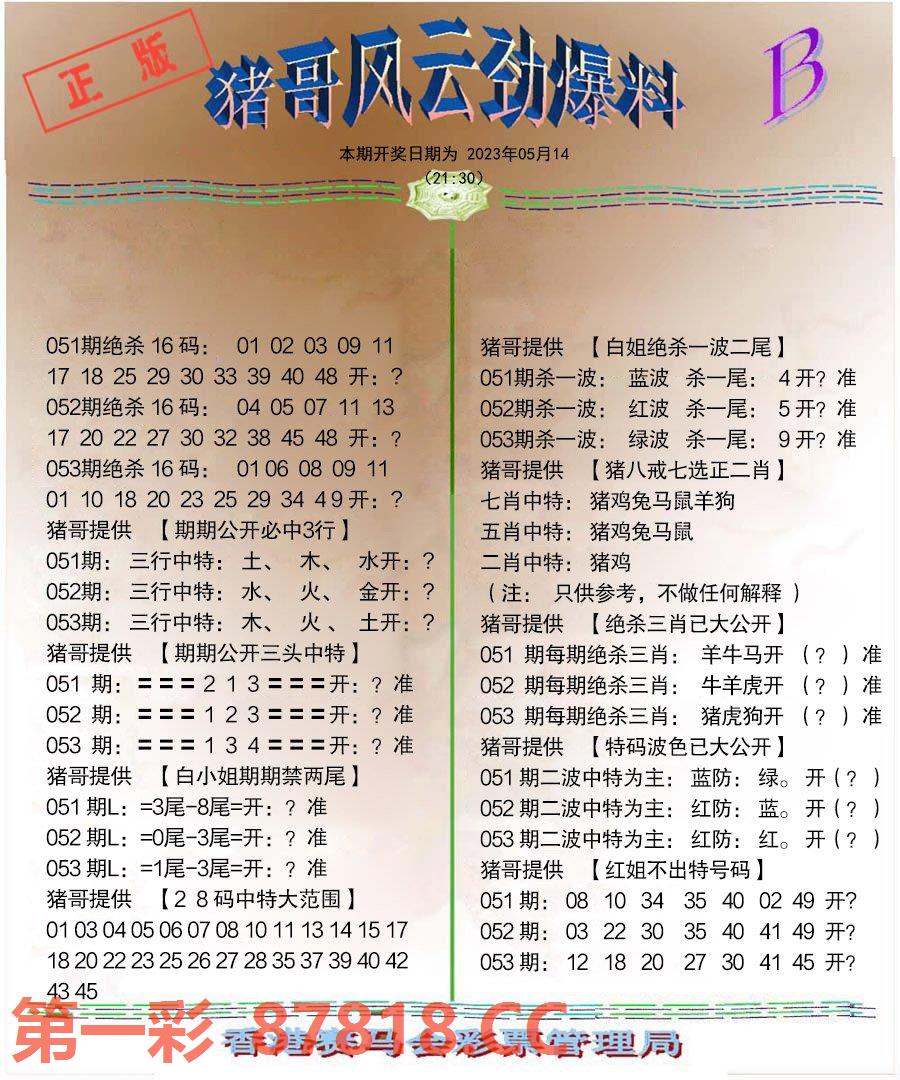 正版
猪哥风云劲爆料
B
本期开奖日期为 2023年05月14
(21:30)
051期绝杀 16 码： 01 02 03 09 11
17 18 25 29 30 33 39 40 48 开：?
052期绝杀 16 码： 04 05 07 11 13
17 20 22 27 30 32 38 45 48 开：?
053期绝杀 16 码： 01 06 08 09 11
01 10 18 20 23 25 29 34 4 9 开：?
猪哥提供 【期期公开必中3行】
051期： 三行中特： 土、 木、 水开：?
052期： 三行中特： 水、 火、 金开：?
053期： 三行中特： 木、 火 、 土开：?
猪哥提供 【期期公开三头中特】
051 期：===2 1 3===开：? 准
052 期：===1 2 3===开：? 准
053 期：===1 3 4===开：? 准
猪哥提供 【白小姐期期禁两尾】
051 期L：=3尾-8尾=开：? 准
052 期L：=0尾-3尾=开：? 准
053 期L：=1尾-3尾=开：? 准
猪哥提供 【2 8 码中特大范围】
01 03 04 05 06 07 08 10 11 13 14 15 17
18 20 22 23 25 26 27 28 35 37 39 40 42
43 45
猪哥提供 【白姐绝杀一波二尾】
051期杀一波： 蓝波 杀一尾： 4 开? 准
052期杀一波： 红波 杀一尾： 5 开? 准
053期杀一波： 绿波 杀一尾： 9 开? 准
猪哥提供 【猪八戒七选正二肖】
七肖中特： 猪鸡兔马鼠羊狗
五肖中特： 猪鸡兔马鼠
二肖中特： 猪鸡
(注： 只供参考，不做任何解释 )
猪哥提供 【绝杀三肖已大公开】
051 期每期绝杀三肖： 羊牛马开 (? ) 准
052 期每期绝杀三肖： 牛羊虎开 (? ) 准
053 期每期绝杀三肖： 猪虎狗开 (? ) 准
猪哥提供 【特码波色已大公开】
051 期二波中特为主： 蓝防： 绿。 开 (? )
052 期二波中特为主： 红防： 蓝。 开 (? )
053 期二波中特为主： 红防： 红。 开 (? )
猪哥提供 【红姐不出特号码】
051 期： 08 10 34 35 40 02 49 开?
052 期： 03 22 30 35 40 41 49 开?
053 期： 12 18 20 27 30 41 45 开?
第一彩 87818.CC
香港赛马会彩票管理局